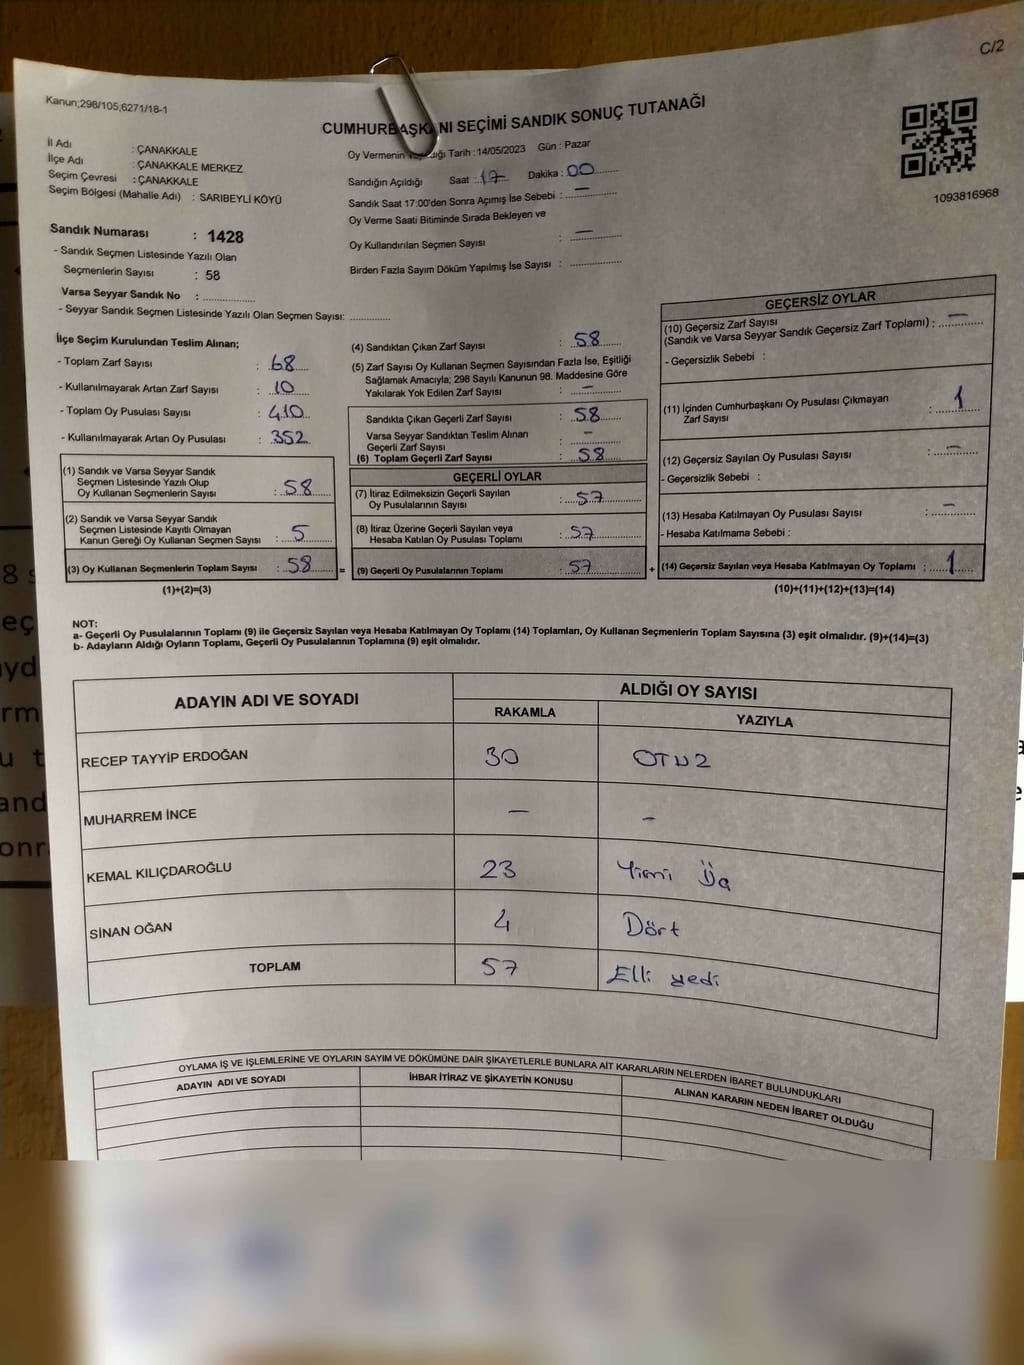 C/2
Kanun;298/105;6271/18-1
CUMHURBAŞKANI SEÇİMİ SANDIK SONUÇ TUTANAĞI
İl Adı : ÇANAKKALE
İlçe Adı : ÇANAKKALE MERKEZ
Seçim Çevresi : ÇANAKKALE
Seçim Bölgesi (Mahalle Adı) : SARIBEYLİ KÖYÜ
Oy Vermenin Tarih : 14/05/2023 Gün : Pazar
Sandığın Açıldığı Saat : 17 Dakika : 00
Sandık Saat 17:00'den Sonra Açımış İse Sebebi : —
Oy Verme Saati Bitiminde Sırada Bekleyen ve
Oy Kullandırılan Seçmen Sayısı : —
Birden Fazla Sayım Döküm Yapılmış İse Sayısı :
1093816968
Sandık Numarası : 1428
- Sandık Seçmen Listesinde Yazılı Olan
Seçmenlerin Sayısı : 58
Varsa Seyyar Sandık No :
- Seyyar Sandık Seçmen Listesinde Yazılı Olan Seçmen Sayısı:
İlçe Seçim Kurulundan Teslim Alınan;
- Toplam Zarf Sayısı : 68
- Kullanılmayarak Artan Zarf Sayısı : 10
- Toplam Oy Pusulası Sayısı : 410
- Kullanılmayarak Artan Oy Pusulası : 352
(1) Sandık ve Varsa Seyyar Sandık
Seçmen Listesinde Yazılı Olup
Oy Kullanan Seçmenlerin Sayısı : 58
(2) Sandık ve Varsa Seyyar Sandık
Seçmen Listesinde Kayıtlı Olmayan
Kanun Gereği Oy Kullanan Seçmen Sayısı : 5
(3) Oy Kullanan Seçmenlerin Toplam Sayısı : 58 =
(1)+(2)=(3)
(4) Sandıktan Çıkan Zarf Sayısı : 58
(5) Zarf Sayısı Oy Kullanan Seçmen Sayısından Fazla İse, Eşitliği
Sağlamak Amacıyla; 298 Sayılı Kanunun 98. Maddesine Göre
Yakılarak Yok Edilen Zarf Sayısı : —
Sandıkta Çıkan Geçerli Zarf Sayısı : 58
Varsa Seyyar Sandıktan Teslim Alınan
Geçerli Zarf Sayısı : —
(6) Toplam Geçerli Zarf Sayısı : 58
GEÇERLİ OYLAR
(7) İtiraz Edilmeksizin Geçerli Sayılan
Oy Pusulalarının Sayısı : 57
(8) İtiraz Üzerine Geçerli Sayılan veya
Hesaba Katılan Oy Pusulası Toplamı : 57
(9) Geçerli Oy Pusulalarının Toplamı : 57 +
GEÇERSİZ OYLAR
(10) Geçersiz Zarf Sayısı
(Sandık ve Varsa Seyyar Sandık Geçersiz Zarf Toplamı) : —
- Geçersizlik Sebebi :
(11) İçinden Cumhurbaşkanı Oy Pusulası Çıkmayan
Zarf Sayısı : 1
(12) Geçersiz Sayılan Oy Pusulası Sayısı : —
- Geçersizlik Sebebi :
(13) Hesaba Katılmayan Oy Pusulası Sayısı : —
- Hesaba Katılmama Sebebi :
(14) Geçersiz Sayılan veya Hesaba Katılmayan Oy Toplamı : 1
(10)+(11)+(12)+(13)=(14)
NOT:
a- Geçerli Oy Pusulalarının Toplamı (9) ile Geçersiz Sayılan veya Hesaba Katılmayan Oy Toplamı (14) Toplamları, Oy Kullanan Seçmenlerin Toplam Sayısına (3) eşit olmalıdır. (9)+(14)=(3)
b- Adayların Aldığı Oyların Toplamı, Geçerli Oy Pusulalarının Toplamına (9) eşit olmalıdır.
ADAYIN ADI VE SOYADI ALDIĞI OY SAYISI
RAKAMLA YAZIYLA
RECEP TAYYİP ERDOĞAN 30 OTUZ
MUHARREM İNCE — —
KEMAL KILIÇDAROĞLU 23 Yirmi Üç
SİNAN OĞAN 4 Dört
TOPLAM 57 Elli yedi
OYLAMA İŞ VE İŞLEMLERİNE VE OYLARIN SAYIM VE DÖKÜMÜNE DAİR ŞİKAYETLERLE BUNLARA AİT KARARLARIN NELERDEN İBARET BULUNDUKLARI
ADAYIN ADI VE SOYADI İHBAR İTİRAZ VE ŞİKAYETİN KONUSU ALINAN KARARIN NEDEN İBARET OLDUĞU